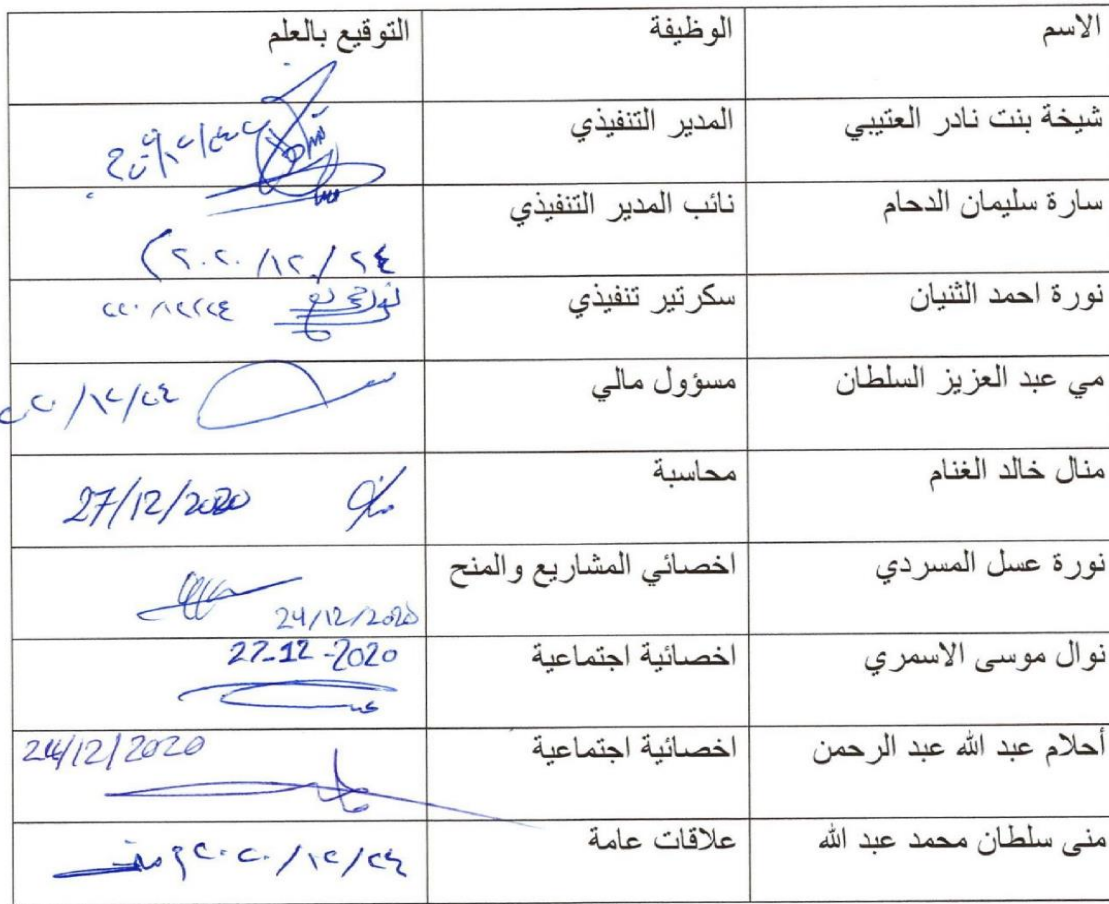 الاسم الوظيفة التوقيع بالعلم
شيخة بنت نادر العتيبي المدير التنفيذي
سارة سليمان الدحام نائب المدير التنفيذي ٢٠٢٠/١٢/٢٤
نورة احمد الثنيان سكرتير تنفيذي
مي عبد العزيز السلطان مسؤول مالي
منال خالد الغنام محاسبة 27/12/2020
نورة عسل المسردي اخصائي المشاريع والمنح 24/12/2020
نوال موسى الاسمري اخصائية اجتماعية 27-12-2020
أحلام عبد الله عبد الرحمن اخصائية اجتماعية 24/12/2020
منى سلطان محمد عبد الله علاقات عامة ٢٠٢٠/١٢/٢٤